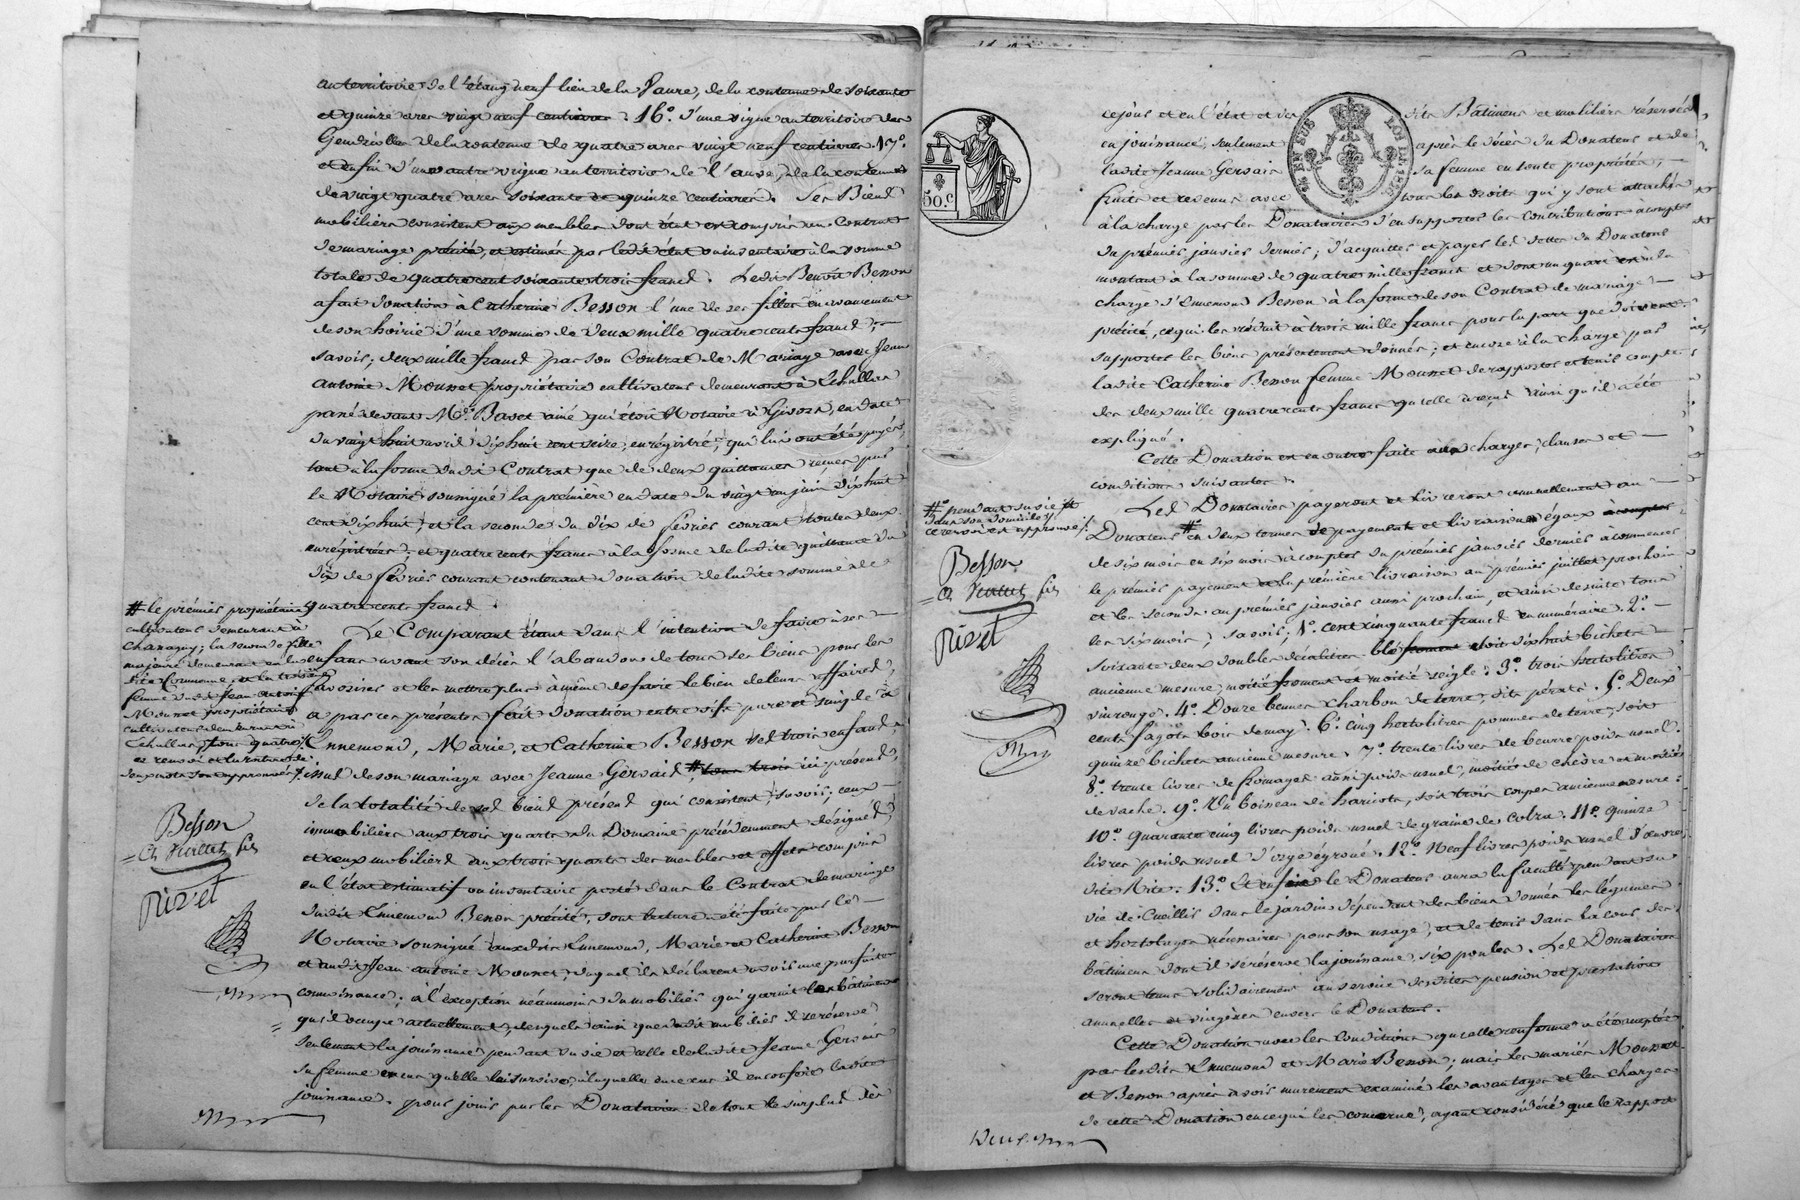 au territoire de l'étang neuf lieu de la Vaure, de la contenue de soixante
et quinze ares vingt neuf centiares. 16.° D'une vigne au territoire des
de la contenue de quatre ares vingt neuf centiares. 17.°
et enfin d'une autre vigne au territoire de l'anse, de la contenue
de vingt quatre ares soixante et quinze centiares. Ses Biens
mobiliers consistent aux meubles dont état est compris au Contrat
de mariage précité, et estimés par ledit état ou inventaire à la somme
totale de quatre cent soixante trois francs. Ledit Benoit Besson
a fait donation à Catherine Besson l'une de ses filles en avancement
de son hoirie d'une somme de deux mille quatre cents francs,
savoir; deux mille francs par son Contrat de Mariage avec Jean
antoine Mounet propriétaire cultivateur demeurant à Echallas
passé devant M.e Basset ainé qui étoit Notaire à Givors, en date
du vingt huit avril dix huit cent seize, enregistré, qui lui ont été payés,
tant à la forme dudit Contrat que de deux quittances reçues par
le Notaire soussigné la première en date du vingt un juin dix huit
cent dix huit, et la seconde du dix de février courant toutes deux
enregistrées; et quatre cents francs à la forme de ladite quittance du
dix de février courant contenant donation de ladite somme de
quatre cents francs.
Le Comparant étant dans l'intention de faire à ses
enfans avant son décès l'abandon de tous ses biens pour les
favoriser et les mettre plus à même de faire le bien de leurs affaires,
a par ces présentes fait donation entre vifs pure et simple à
Ennemond, Marie, et Catherine Besson ses trois enfans,
issus de son mariage avec Jeanne Gervais # tous trois ici présens,
de la totalité de ses biens présens qui consistent, savoir; ceux
immobiliers aux trois quarts du Domaine précédemment désigné,
et ceux mobiliers aux trois quarts des meubles et effets compris
en l'état estimatif ou inventaire porté dans le Contrat de mariage
dudit Ennemond Besson précité, dont lecture a été faite par le
Notaire soussigné auxdits Ennemond, Marie et Catherine Besson
et audit Jean antoine Mounet, duquel ils déclarent avoir une parfaite
connoissance; à l'exception néanmoins du mobilier qui garnit les bâtimens
qu'il occupe actuellement, desquels ainsi que dudit mobilier il se réserve
seulement la jouissance pendant sa vie et celle de ladite Jeanne Gervais
sa femme en cas qu'elle lui survive, à laquelle audit cas il en confère ladite
jouissance. pour jouir par les Donataires de tout le surplus dès
# le premier propriétaire
cultivateur demeurant à
Chassagny; la seconde fille
majeure demeurant en la
dite Commune, et la troisième
femme dudit Jean antoine
Mounet propriétaire
cultivateur demeurant à
Echallas, tous quatre
ce renvoi et la rature de
deux mots sont approuvés
Besson
Rivet
50.c
¼ EN SUS LOI DE 1816
ce jour et en l'état et des dits Bâtimens et mobiliers réservés
en jouissance, seulement après le décès du Donateur et de
ladite Jeanne Gervais sa femme en toute propriété,
fruits et revenus avec tous les droits qui y sont attachés
à la charge par les Donataires d'en supporter les contributions à compter
du premier janvier dernier; d'acquitter et payer les dettes du Donateur
montant à la somme de quatre mille francs et dont un quart est à la
charge d'Ennemond Besson à la forme de son Contrat de mariage
précité, ce qui les réduit à trois mille francs pour la part que doivent
supporter les biens présentement donnés; et encore à la charge par
ladite Catherine Besson femme Mounet de rapporter et tenir compte
des deux mille quatre cents francs qu'elle a reçus ainsi qu'il a été
expliqué.
Cette Donation est en outre faite aux charges, clauses et
conditions suivantes.
Les Donataires payeront et livreront annuellement au
Donateur # en deux termes de payement et livraison égaux à compter
de six mois en six mois à compter du premier janvier dernier à commencer
le premier payement et la première livraison au premier juillet prochain
et les seconds au premier janvier aussi prochain, et ainsi de suite tous
les six mois; savoir; 1.° cent cinquante francs en numéraire. 2.°
soixante deux doubles décalitres blé froment soit dix huit bichets
ancienne mesure, moitié froment et moitié seigle. 3.° trois hectolitres
vin rouge. 4.° Douze bennes Charbon de terre, dite pérate. 5.° Deux
cents fagots bois de may. 6.° cinq hectolitres pommes de terre, soit
quinze bichets ancienne mesure. 7.° trente livres de beurre poids usuel.
8.° trente livres de fromages aussi poids usuel, moitié de chèvre et moitié
de vache. 9.° Un boisseau de haricots, soit trois coupes ancienne mesure.
10.° quarante cinq livres poids usuel de graine de colza. 11.° quinze
livres poids usuel d'orge égrué. 12.° Neuf livres poids usuel d'œuvre
dite Rite. 13.° Et enfin le Donateur aura la faculté pendant sa
vie de Cueillir dans le jardin dépendant des biens donnés les légumes
et hortolages nécessaires pour son usage, et de tenir dans la cour des
bâtimens dont il se réserve la jouissance six poules. Les Donataires
seront tenus solidairement au service desdites pension et prestations
annuelles et viagères envers le Donateur.
Cette Donation avec les Conditions qu'elle renferme a été acceptée
par lesdits Ennemond et Marie Besson; mais les mariés Mounet
et Besson après avoir murement examiné les avantages et les charges
de cette Donation en ce qui les concerne, ayant considéré que le rapport
# pendant sa vie et
dans son domicile,
ce renvoi est approuvé.
Besson
Rivet